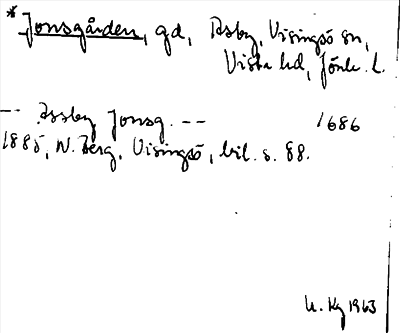 * Jonsgården, gd, Rsby, Visingsö sn,
Vista hd, Jönk. l.
-- Rssby Jonsg. -- 1686
1885, W. Berg, Visingsö, bil. s. 88.
U. Kg 1963